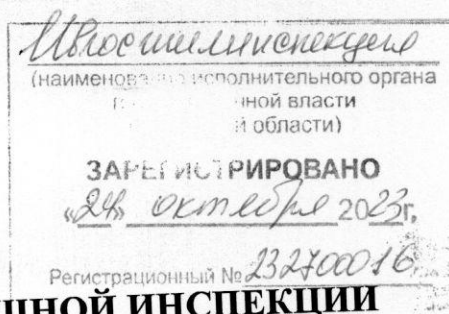 Ивгосжилинспекция
(наименование исполнительного органа
ной власти
й области)
ЗАРЕГИСТРИРОВАНО
«24» октября 2023г.
Регистрационный № 232700016
ШНОЙ ИНСПЕКЦИИ